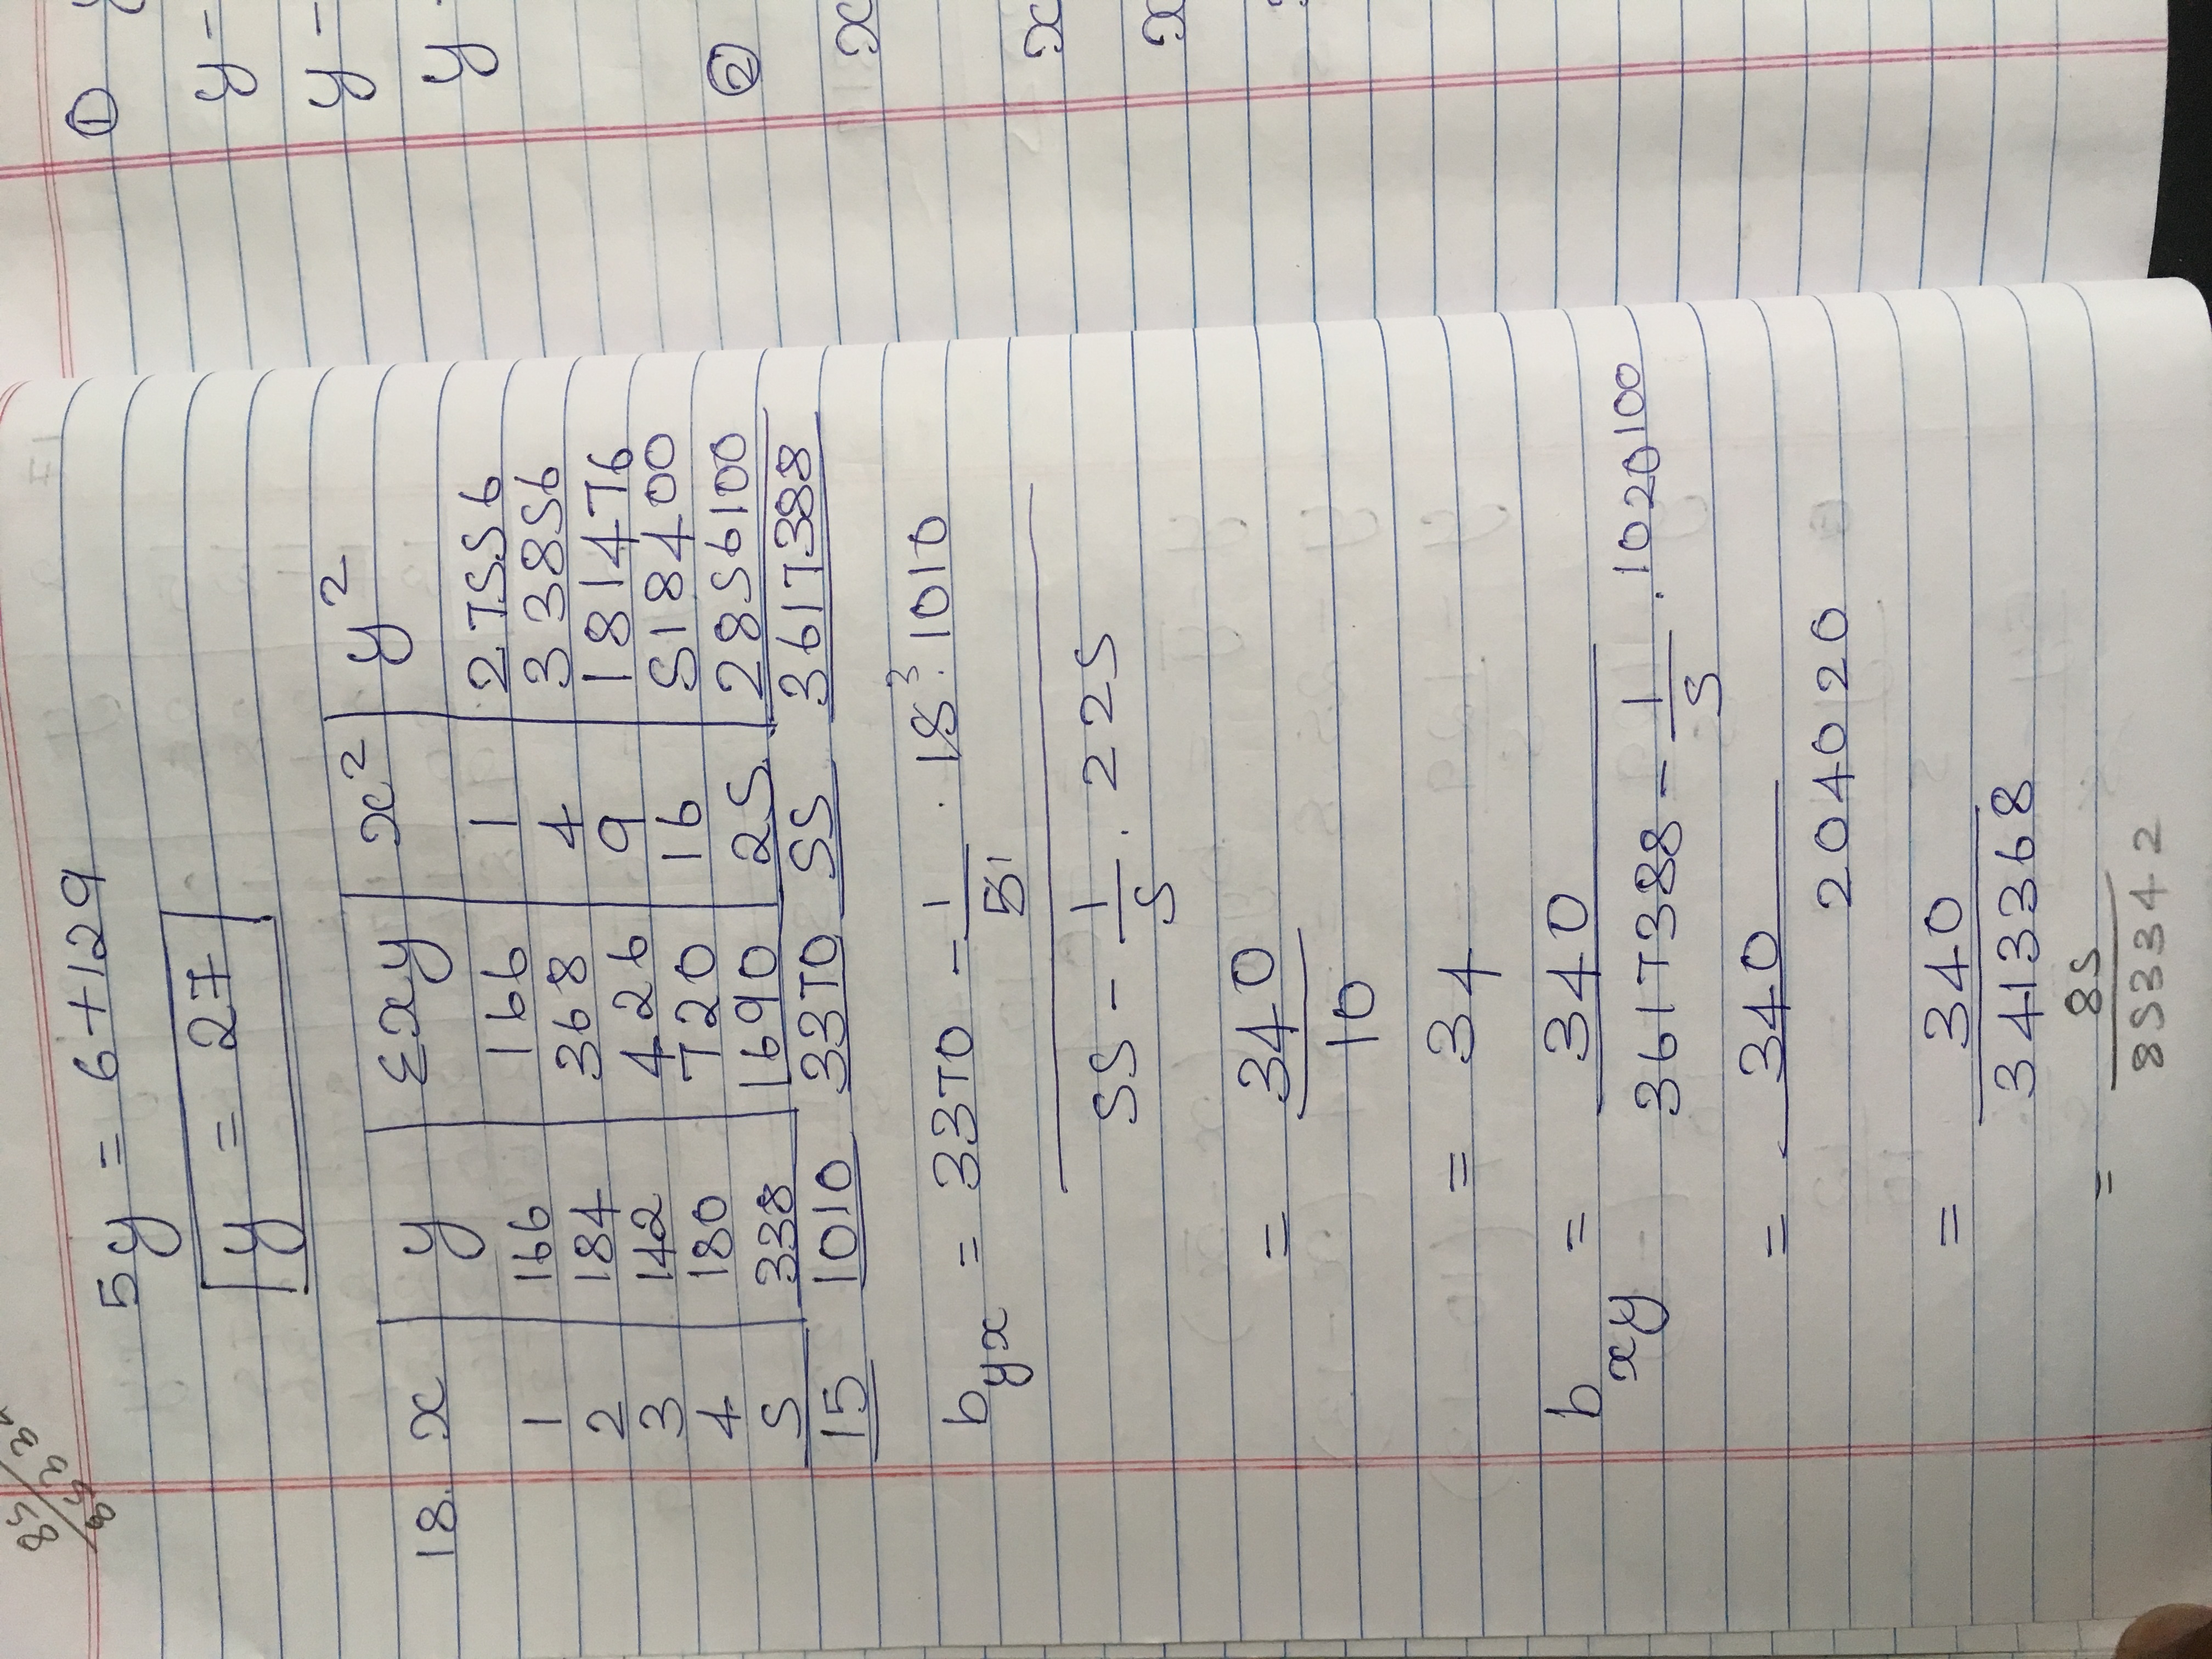 85/85334
5y = 6+129
y = 27
18. x | y | Σxy | x² | y²
1 | 166 | 166 | 1 | 27556
2 | 184 | 368 | 4 | 33856
3 | 142 | 426 | 9 | 181476
4 | 180 | 720 | 16 | 518400
5 | 338 | 1690 | 25 | 2856100
15 1010 3370 55 3617388
b_yx = (3370 - 1/51 · 15³ · 1010) / (55 - 1/5 · 225)
= 340/10
= 34
b_xy = 340 / (3617388 - 1/5 · 1020100)
= 340 / 204020
= 340 / 3413368
= 85 / 853342
① y
y-
y-
y-
②
x
x
x